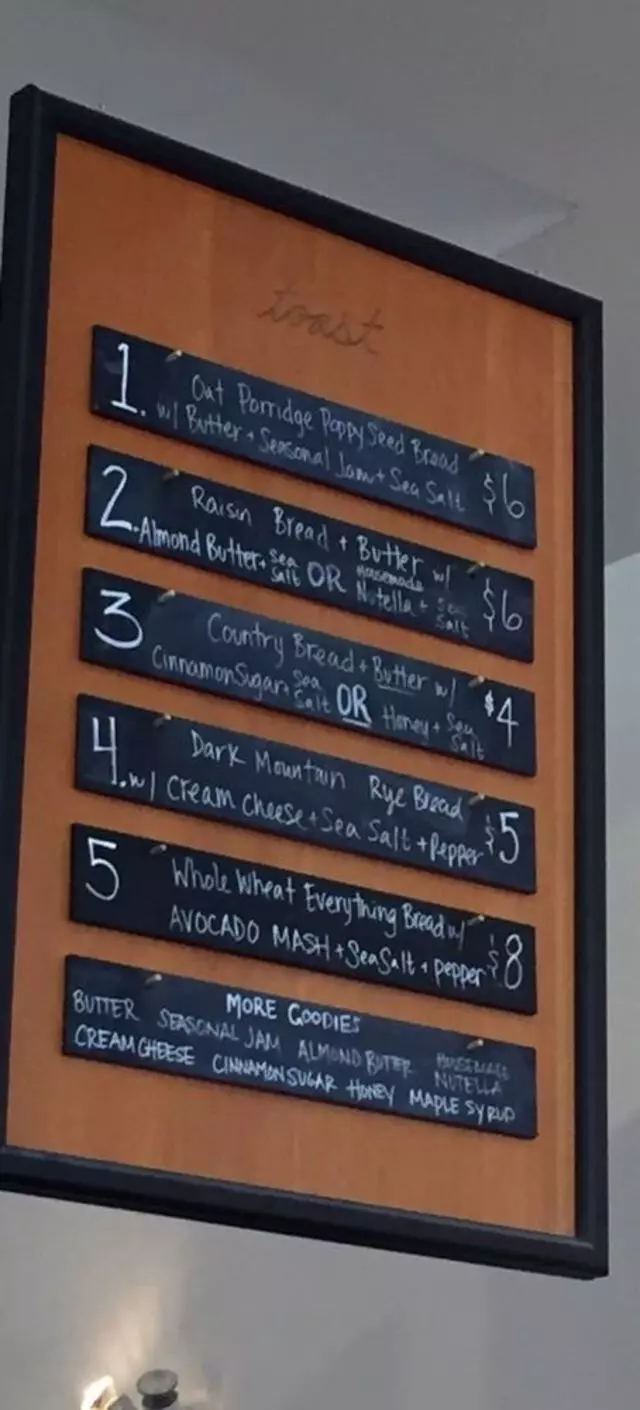 toast
1. Oat Porridge Poppy Seed Bread
w/ Butter + Seasonal Jam + Sea Salt $6
2. Raisin Bread + Butter w/
Almond Butter + Sea Salt OR Housemade Nutella + Sea Salt $6
3 Country Bread + Butter w/
Cinnamon Sugar + Sea Salt OR Honey + Sea Salt $4
4. Dark Mountain Rye Bread
w/ Cream Cheese + Sea Salt + Pepper $5
5 Whole Wheat Everything Bread w/
AVOCADO MASH + Sea Salt + pepper $8
MORE GOODIES
BUTTER SEASONAL JAM ALMOND BUTTER HOUSEMADE NUTELLA
CREAM CHEESE CINNAMON SUGAR HONEY MAPLE SYRUP